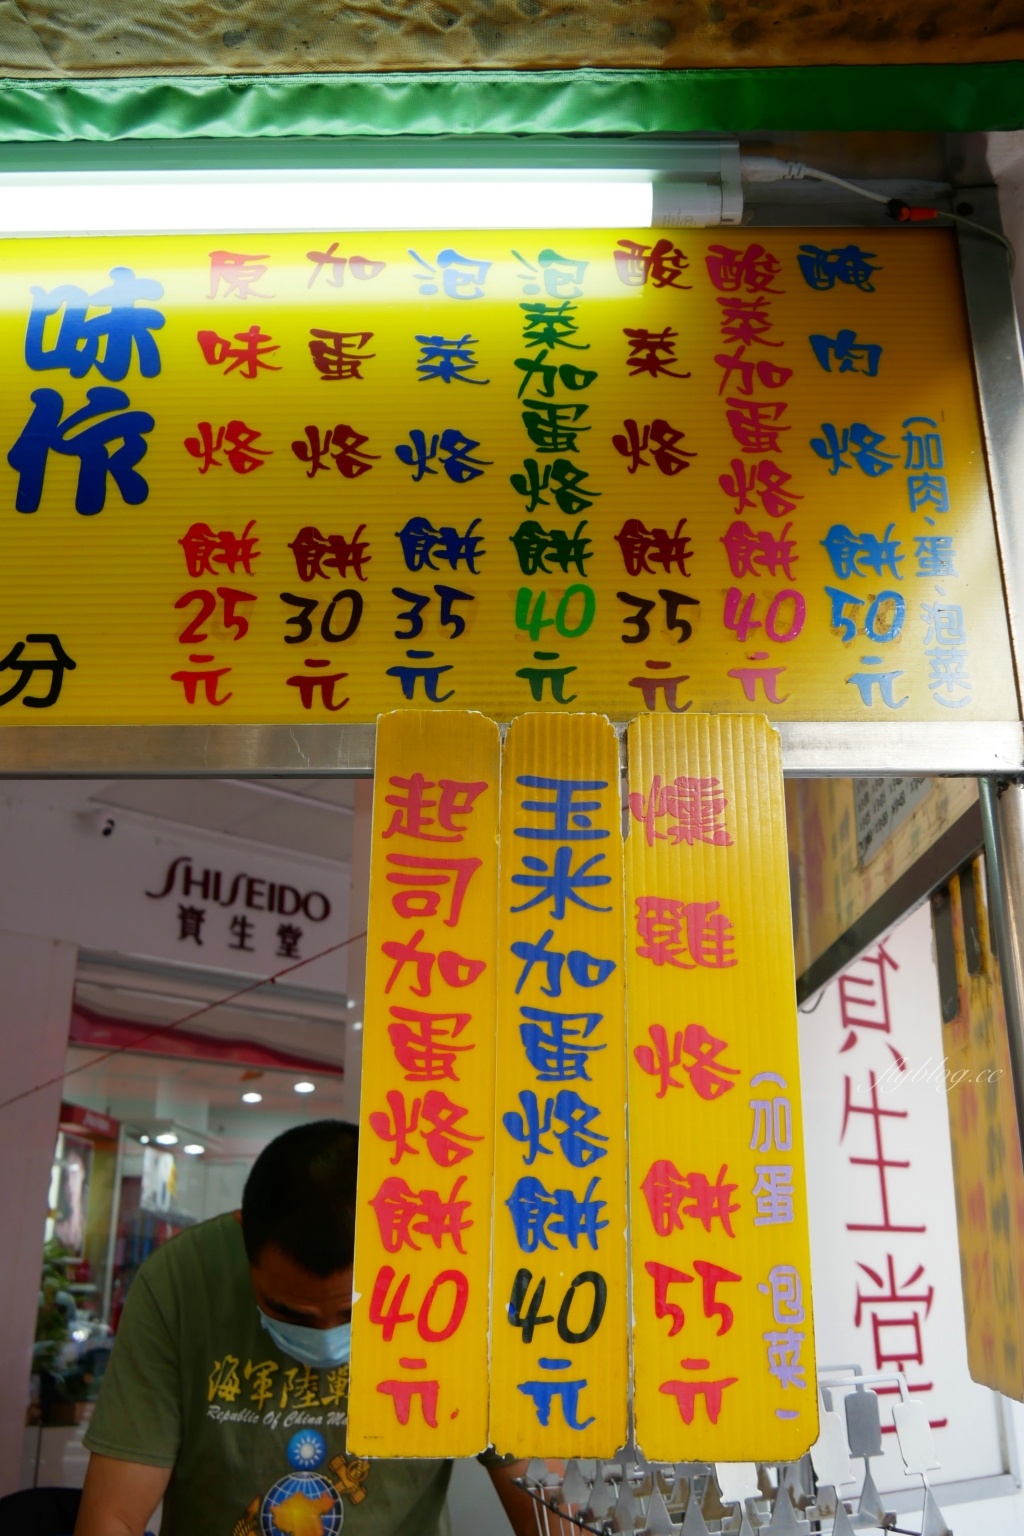 味作
分
原味烙餅25元
加蛋烙餅30元
泡菜烙餅35元
泡菜加蛋烙餅40元
酸菜烙餅35元
酸菜加蛋烙餅40元
醃肉烙餅50元
(加肉、蛋、泡菜)
起司加蛋烙餅40元
玉米加蛋烙餅40元
燻雞烙餅55元
(加蛋 包菜)
SHISEIDO
資生堂
資生堂
海軍陸戰
Republic Of China Ma
flyblog.cc